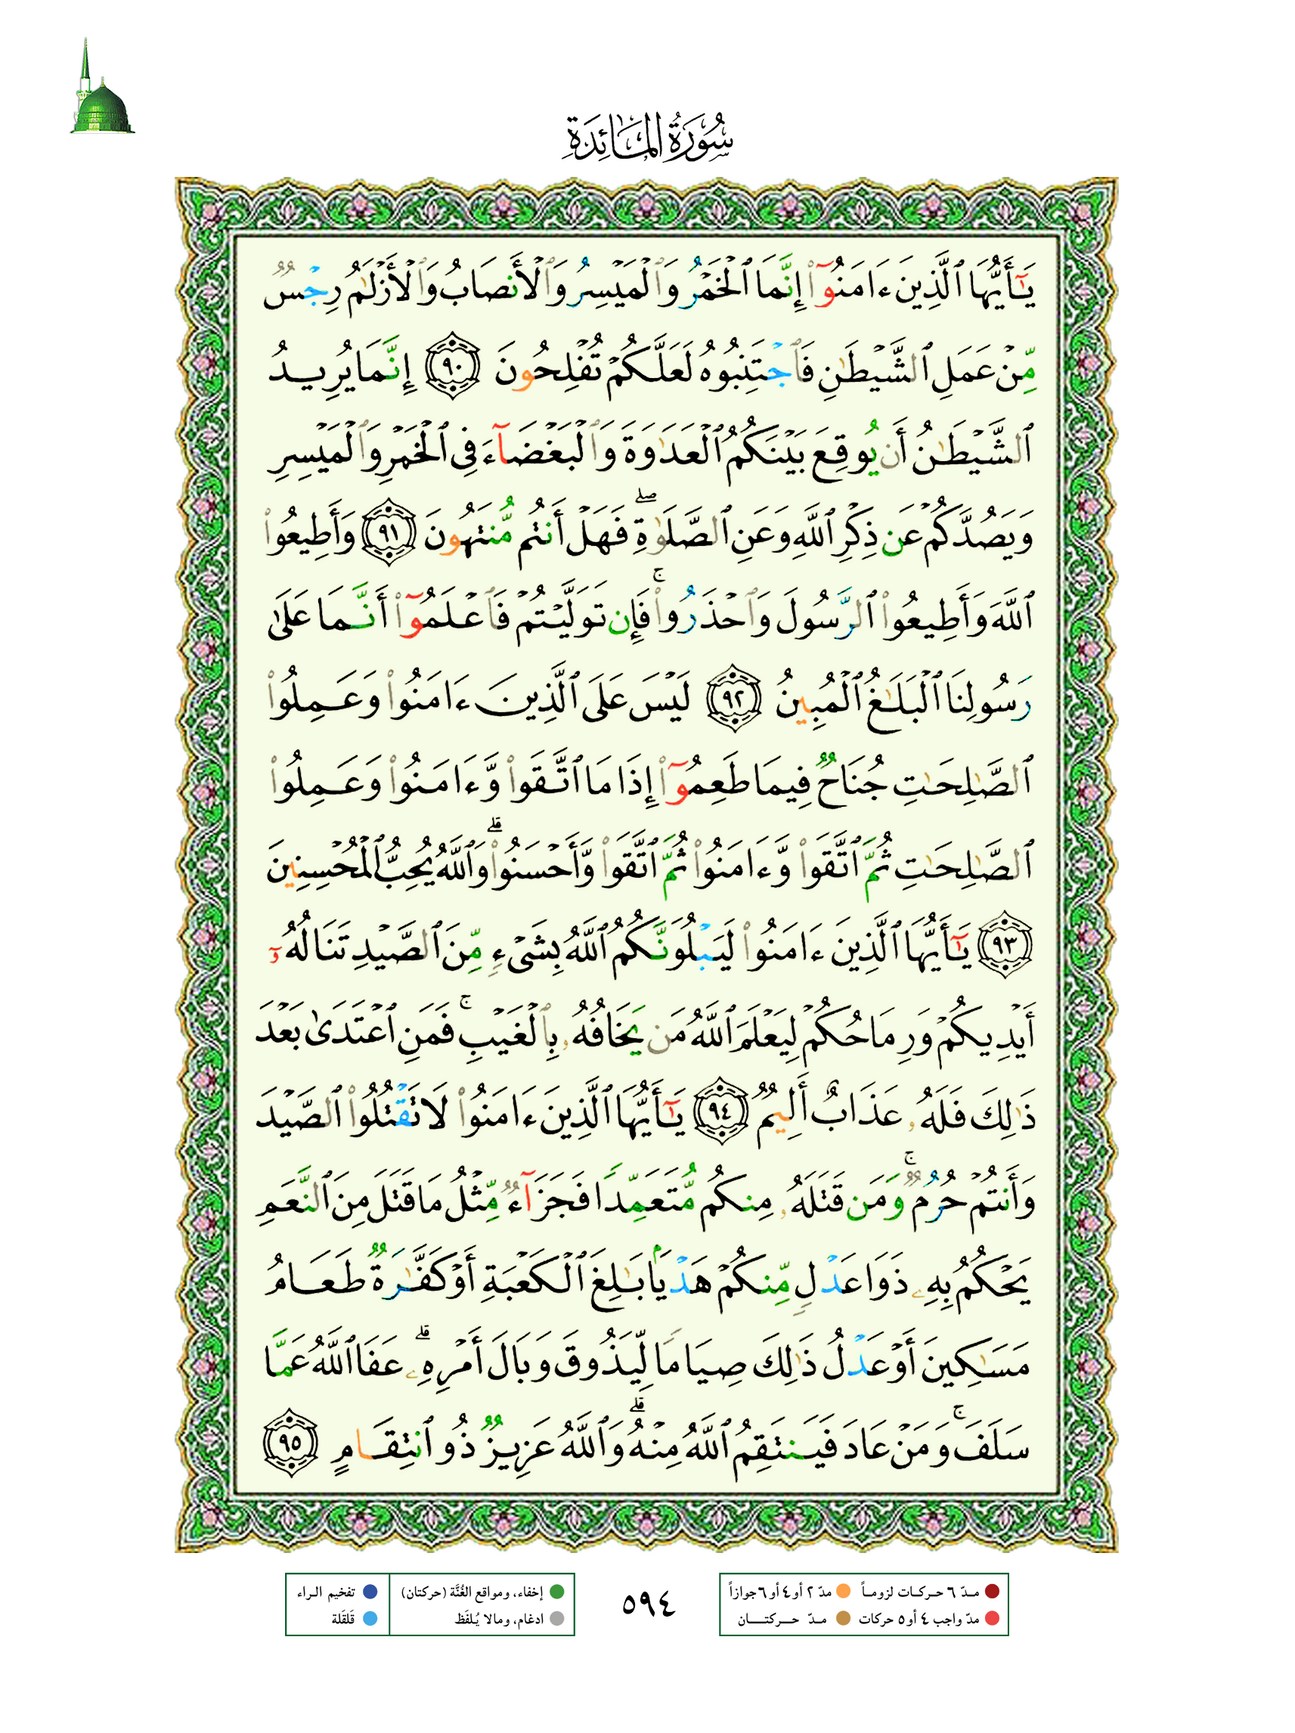 سُورَةُ المَائِدَةِ
يَٰٓأَيُّهَا ٱلَّذِينَ ءَامَنُوٓا۟ إِنَّمَا ٱلْخَمْرُ وَٱلْمَيْسِرُ وَٱلْأَنصَابُ وَٱلْأَزْلَٰمُ رِجْسٌ
مِّنْ عَمَلِ ٱلشَّيْطَٰنِ فَٱجْتَنِبُوهُ لَعَلَّكُمْ تُفْلِحُونَ ﴿٩٠﴾ إِنَّمَا يُرِيدُ
ٱلشَّيْطَٰنُ أَن يُوقِعَ بَيْنَكُمُ ٱلْعَدَٰوَةَ وَٱلْبَغْضَآءَ فِى ٱلْخَمْرِ وَٱلْمَيْسِرِ
وَيَصُدَّكُمْ عَن ذِكْرِ ٱللَّهِ وَعَنِ ٱلصَّلَوٰةِ ۖ فَهَلْ أَنتُم مُّنتَهُونَ ﴿٩١﴾ وَأَطِيعُوا۟
ٱللَّهَ وَأَطِيعُوا۟ ٱلرَّسُولَ وَٱحْذَرُوا۟ ۚ فَإِن تَوَلَّيْتُمْ فَٱعْلَمُوٓا۟ أَنَّمَا عَلَىٰ
رَسُولِنَا ٱلْبَلَٰغُ ٱلْمُبِينُ ﴿٩٢﴾ لَيْسَ عَلَى ٱلَّذِينَ ءَامَنُوا۟ وَعَمِلُوا۟
ٱلصَّٰلِحَٰتِ جُنَاحٌ فِيمَا طَعِمُوٓا۟ إِذَا مَا ٱتَّقَوا۟ وَّءَامَنُوا۟ وَعَمِلُوا۟
ٱلصَّٰلِحَٰتِ ثُمَّ ٱتَّقَوا۟ وَّءَامَنُوا۟ ثُمَّ ٱتَّقَوا۟ وَّأَحْسَنُوا۟ ۗ وَٱللَّهُ يُحِبُّ ٱلْمُحْسِنِينَ
﴿٩٣﴾ يَٰٓأَيُّهَا ٱلَّذِينَ ءَامَنُوا۟ لَيَبْلُوَنَّكُمُ ٱللَّهُ بِشَىْءٍ مِّنَ ٱلصَّيْدِ تَنَالُهُۥٓ
أَيْدِيكُمْ وَرِمَاحُكُمْ لِيَعْلَمَ ٱللَّهُ مَن يَخَافُهُۥ بِٱلْغَيْبِ ۚ فَمَنِ ٱعْتَدَىٰ بَعْدَ
ذَٰلِكَ فَلَهُۥ عَذَابٌ أَلِيمٌ ﴿٩٤﴾ يَٰٓأَيُّهَا ٱلَّذِينَ ءَامَنُوا۟ لَا تَقْتُلُوا۟ ٱلصَّيْدَ
وَأَنتُمْ حُرُمٌ ۚ وَمَن قَتَلَهُۥ مِنكُم مُّتَعَمِّدًا فَجَزَآءٌ مِّثْلُ مَا قَتَلَ مِنَ ٱلنَّعَمِ
يَحْكُمُ بِهِۦ ذَوَا عَدْلٍ مِّنكُمْ هَدْيًۢا بَٰلِغَ ٱلْكَعْبَةِ أَوْ كَفَّٰرَةٌ طَعَامُ
مَسَٰكِينَ أَوْ عَدْلُ ذَٰلِكَ صِيَامًا لِّيَذُوقَ وَبَالَ أَمْرِهِۦ ۗ عَفَا ٱللَّهُ عَمَّا
سَلَفَ ۚ وَمَنْ عَادَ فَيَنتَقِمُ ٱللَّهُ مِنْهُ ۗ وَٱللَّهُ عَزِيزٌ ذُو ٱنتِقَامٍ ﴿٩٥﴾
مدّ ٦ حركات لزوماً مدّ ٢ أو ٤ أو ٦ جوازاً
مدّ واجب ٤ أو ٥ حركات مدّ حركتان
٥٩٤
إخفاء، ومواقع الغُنَّة (حركتان) تفخيم الراء
ادغام، ومالا يُلفَظ قلقلة